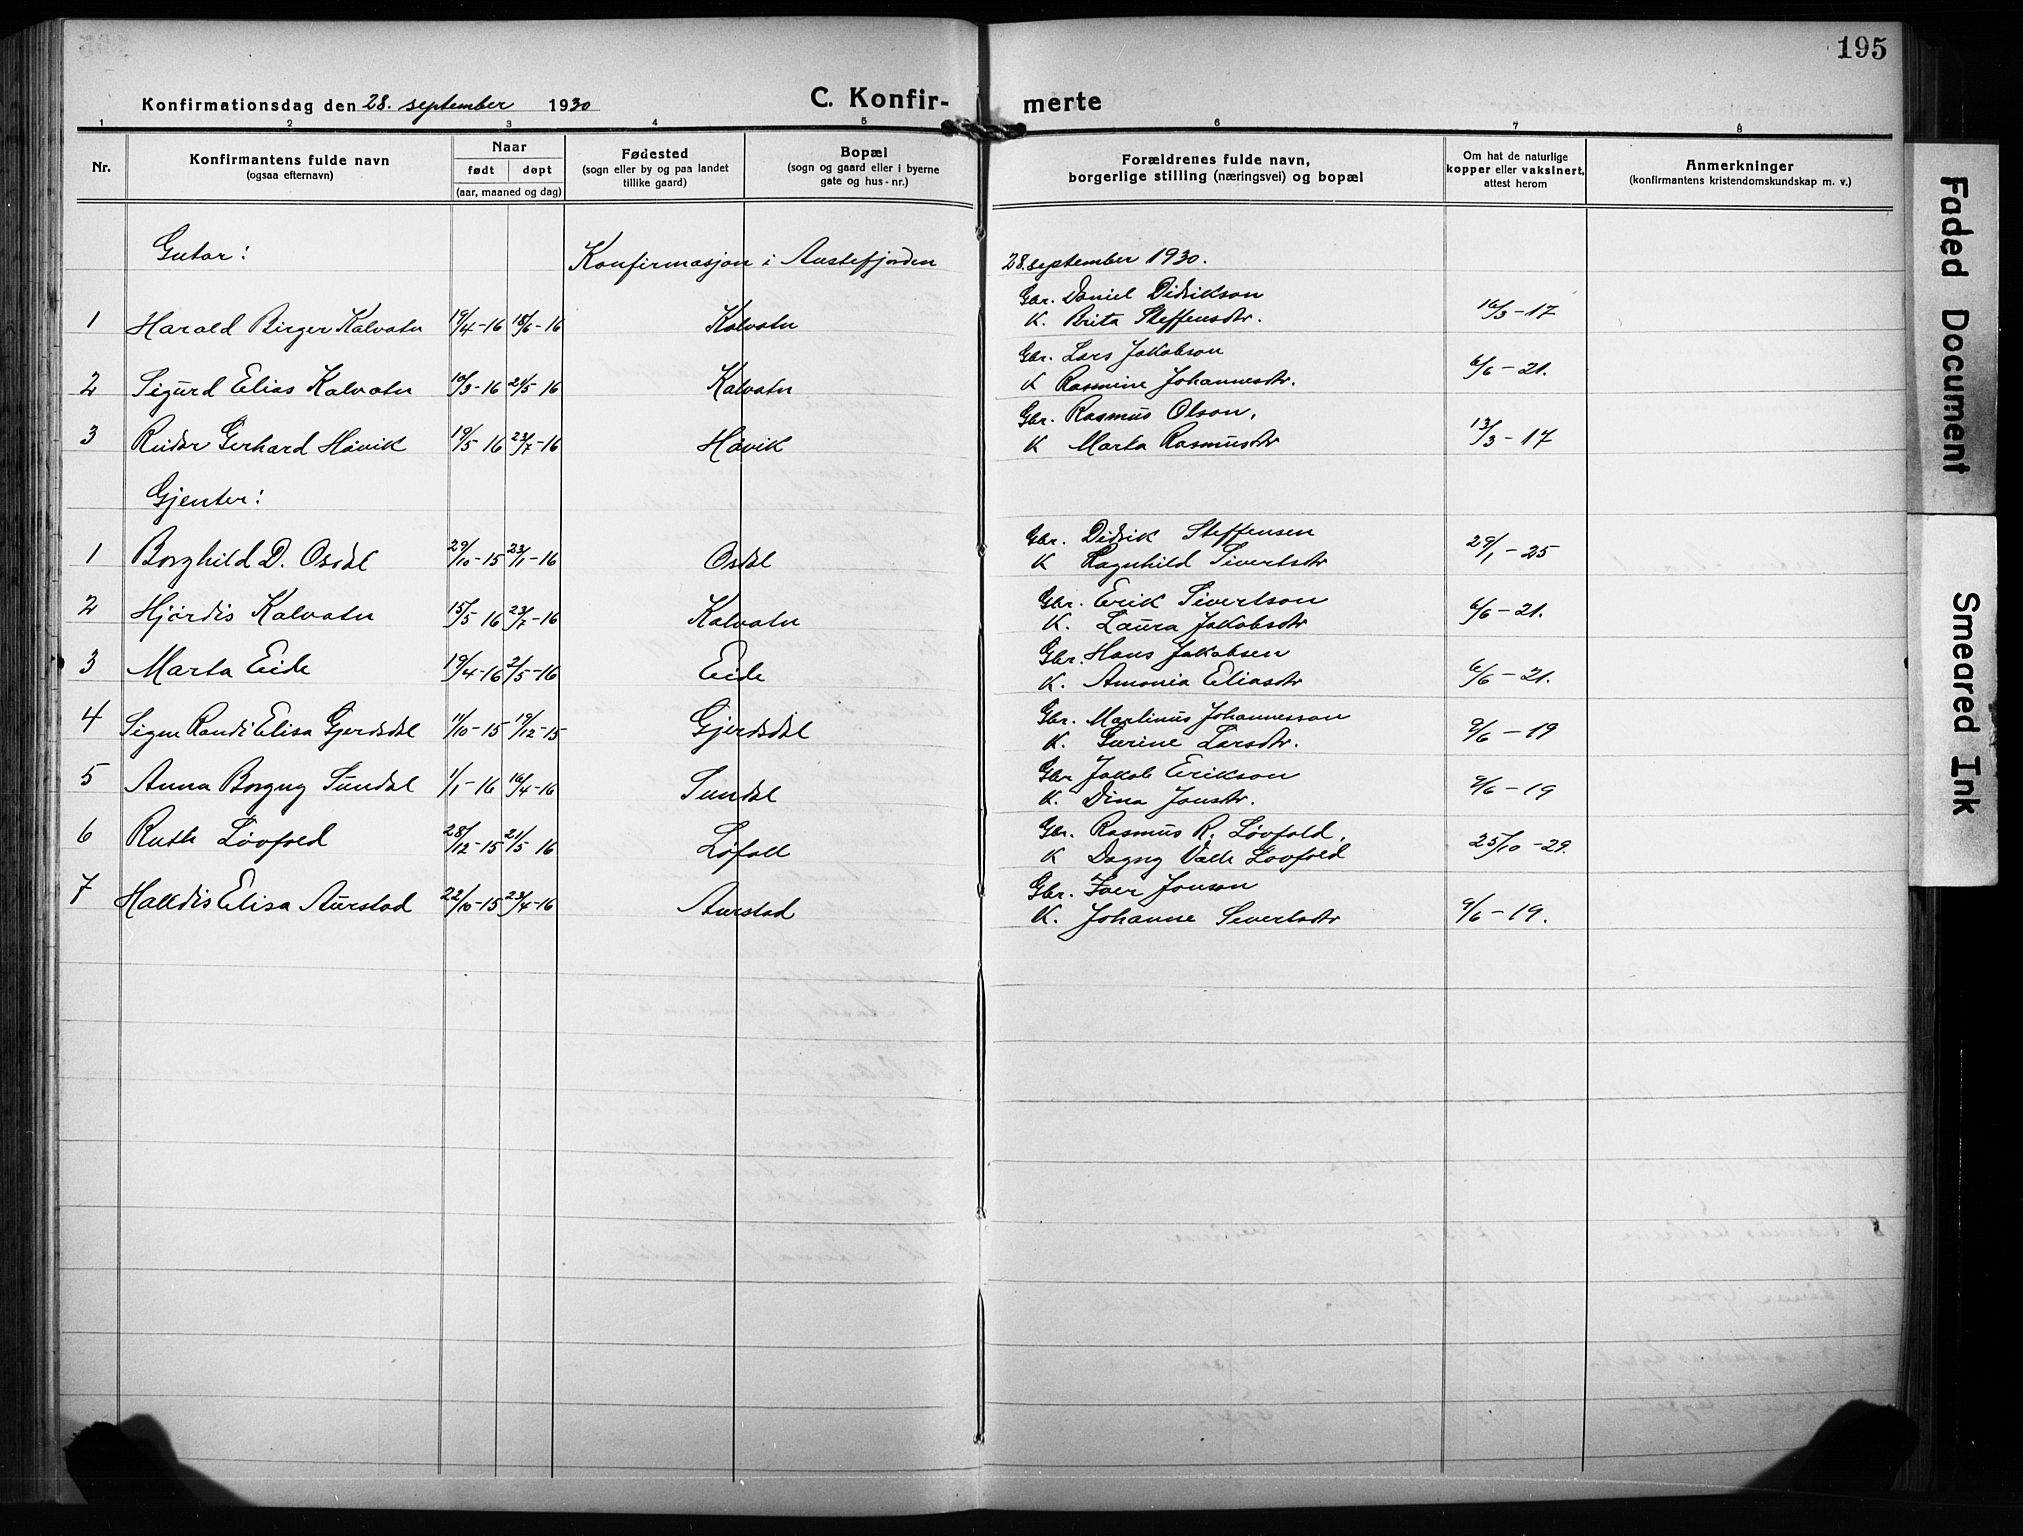 195
Konfirmationsdag den 28. september 1930
C. Konfir-
merte
1 2 3 4 5 6 7 8
Nr.
Konfirmantens fulde navn
(ogsaa efternavn)
Naar
født døpt
(aar, maaned og dag)
Fødested
(sogn eller by og paa landet
tillike gaard)
Bopæl
(sogn og gaard eller i byerne
gate og hus-nr.)
Forældrenes fulde navn,
borgerlige stilling (næringsvei) og bopæl
Om hat de naturlige
kopper eller vaksinert,
attest herom
Anmerkninger
(konfirmantens kristendomskundskap m. v.)
Gutar: Konfirmasjon i Austefjorden 28. september 1930.
Gbr. Daniel Didrikson
1 Harald Birger Kalvatn 19/4-16 18/6-16 Kalvatn K. Brita Steffensdtr. 16/3-17
Gbr. Lars Jakobson
2 Sigurd Elias Kalvatn 10/3-16 21/5-16 Kalvatn K Rasmine Johannesdtr. 6/6-21.
Gbr. Rasmus Olson,
3 Reidar Gerhard Høvik 19/5-16 23/7-16 Høvik K Marta Rasmusdtr 13/3-17
Gjenter:
Gbr. Didrik Steffensen
1 Borghild D. Osdal 29/10-15 23/1-16 Osdal K Ragnhild Sivertsdtr 29/1-25
Gbr. Erik Sivertson
2 Hjørdis Kalvatn 15/5-16 23/7-16 Kalvatn K. Laura Jakobsdtr 6/6-21.
Gbr. Hans Jakobsen
3 Marta Eide 19/4-16 21/5-16 Eide K. Amonia Eliasdtr 6/6-21.
Gbr. Martinus Johannesson
4 Signe Randi Elisa Gjerdsdal 11/10-15 19/12-15 Gjerdsdal K. Serine Larsdtr. 9/6-19
Gbr Jakob Erikson
5 Anna Borgny Sundal 1/1-16 16/4-16 Sundal K. Dina Jonsdtr. 9/6-19
Gbr. Rasmus R. Løvfold,
6 Ruth Løvfold 28/12-15 21/5 16 Løfall K Dagny Valle Lovfold 25/10-29.
Gbr. Iver Jonson
7 Halldis Elisa Aurstad 22/10-15 23/4-16 Aurstad K. Johanne Sivertsdtr 9/6-19.
Faded Document
Smeared Ink